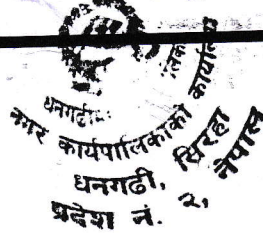 धनगढी
नगर कार्यपालिकाको कार्यालय
धनगढी, सिरहा
प्रदेश नं. २, नेपाल